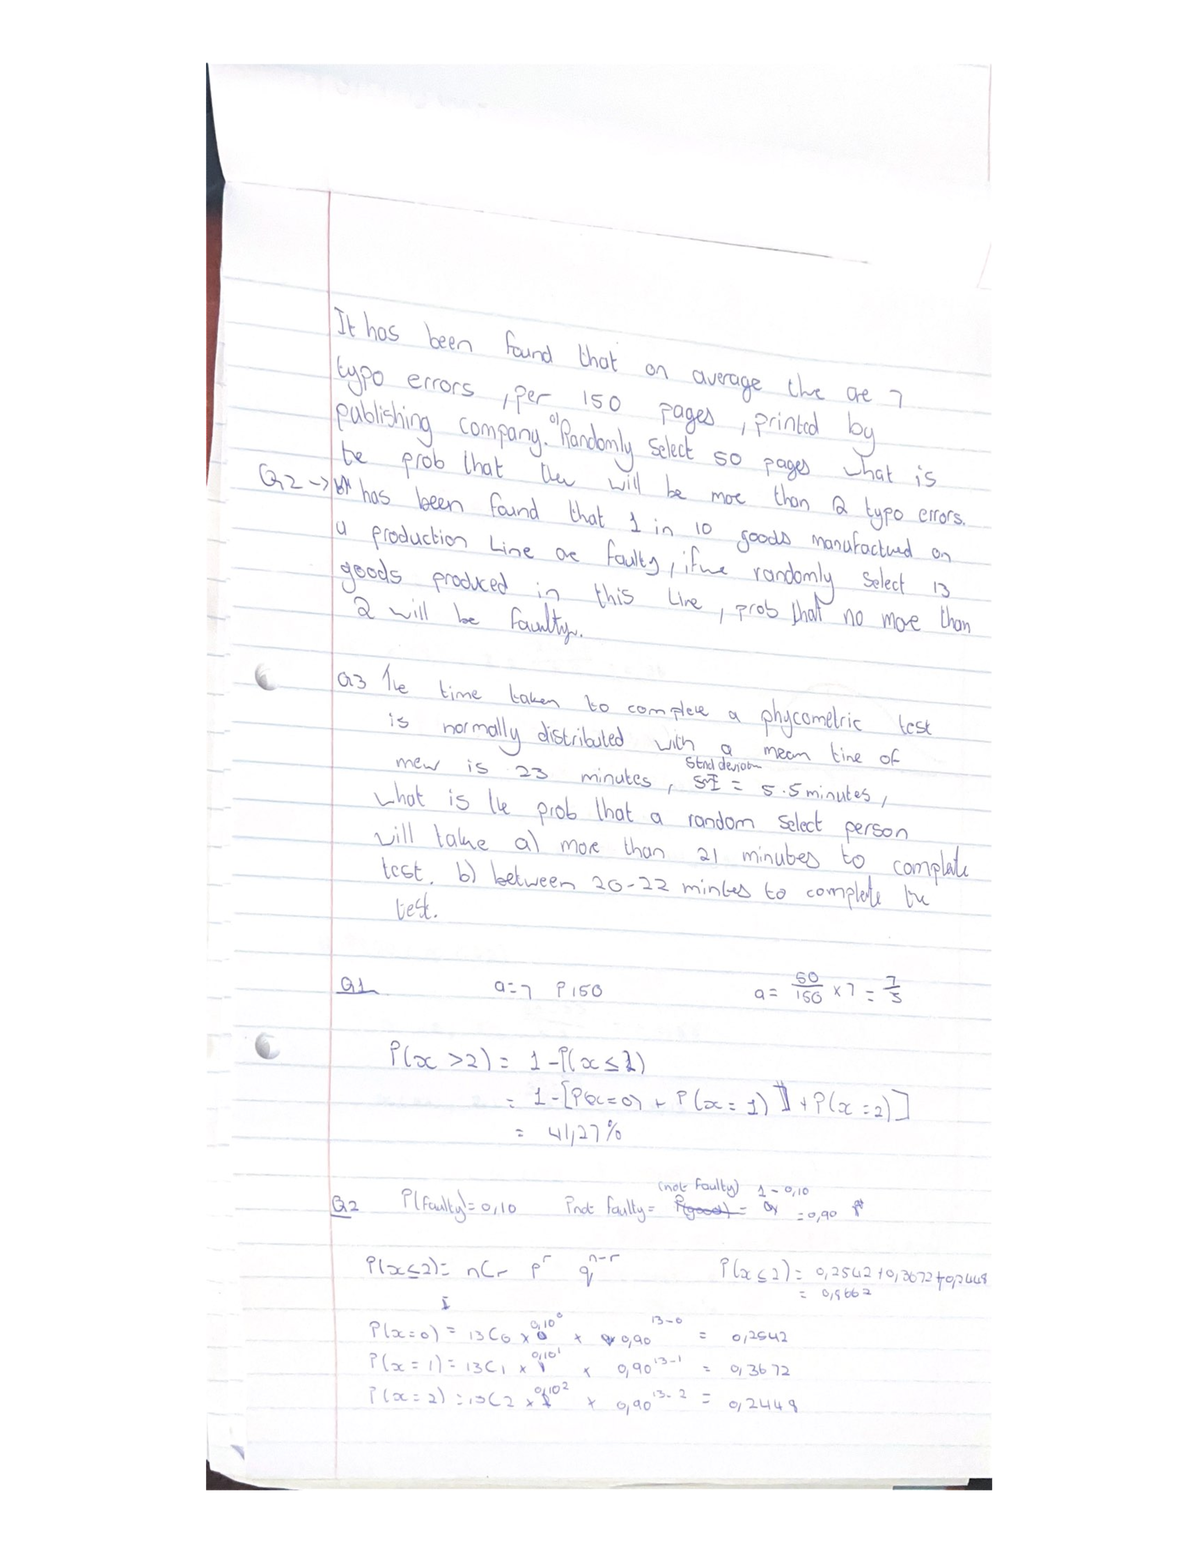 It has been found that on average the are 7
typo errors, per 150 pages, printed by
publishing company. a) Randomly select 50 pages what is
the prob that ther will be more than 2 typo errors.
Q2 → has been found that 1 in 10 goods manufactured on
a production Line are faulty, if we randomly select 13
goods produced in this Line, prob that no more than
2 will be faulty.
Q3 The time taken to complete a phycometric test
is normally distributed with a mean time of
mew is 23 minutes, = 5.5 minutes,
Stnd deviation
what is the prob that a random select person
will take a) more than 21 minutes to complete
test. b) between 20-22 mintes to complete the
test.
Q1 a=7 P150 a = 50/150 × 7 = 7/3
P(x >2) = 1 - P(x ≤ 2)
= 1 - [P(x=0) + P(x = 1) + P(x = 2)]
= 41,27%
(not faulty) 1 - 0,10
Q2 P(faulty) = 0,10 Pnot faulty = = 0,90
P(x≤2) = nCr p^r q^n-r P(x ≤ 2) = 0,2542 + 0,3672 + 0,2448
= 0,8662
P(x=0) = 13C0 × 0,10^0 × 0,90^13-0 = 0,2542
P(x = 1) = 13C1 × 0,10^1 × 0,90^13-1 = 0,3672
P(x = 2) = 13C2 × 0,10^2 × 0,90^13-2 = 0,2448